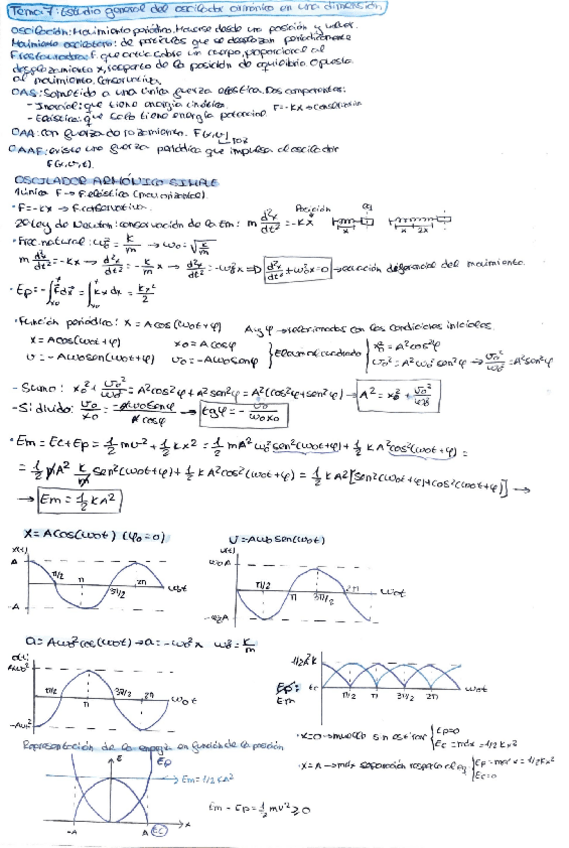 Tema 7: Estudio general del oscilador armónico en una dimensión.
Oscilación: Movimiento periódico. Moverse desde una posición y volver.
Movimiento oscilatorio: de partículas que se desplazan periódicamente
F restauradora: F. que actúa sobre un cuerpo, proporcional al
desplazamiento x, respecto de la posición de equilibrio opuesta
al movimiento. Conservativa.
OAS: Sometido a una única fuerza elástica. Dos componentes:
- Inercial: que tiene energía cinética.
F=-kx → conservativa
- Elástica: que solo tiene energía potencial
OAA: con fuerza de rozamiento. F(x,v)
roz
OAAF: existe una fuerza periódica que impulsa al oscilador
F(x,v,t).
OSCILADOR ARMÓNICO SIMPLE
1 única F → F elástica (recuperadora).
· F=-kx → F. conservativa.
2º Ley de Newton: conservación de la Em: m d²x/dt² = -kx
Posición
eq
x
x 2x
· Frec. natural: ω₀² = k/m → ω₀ = √(k/m)
m d²x/dt² = -kx → d²x/dt² = -k/m x → d²x/dt² = -ω₀²x ⇒ d²x/dt² + ω₀²x = 0 → ecuación diferencial del movimiento.
· Ep = -∫F dx = ∫kx dx = kx²/2
· Función periódica: x = A cos(ω₀t+φ) A y φ → relacionadas con las condiciones iniciales
x = A cos(ω₀t+φ) x₀ = A cosφ
v = -Aω₀ sen(ω₀t+φ) v₀ = -Aω₀ senφ
Elevando al cuadrado
x₀² = A²cos²φ
v₀² = A²ω₀² sen²φ → v₀²/ω₀² = A²sen²φ
- Sumo: x₀² + v₀²/ω₀² = A²cos²φ + A²sen²φ = A²(cos²φ+sen²φ) → A² = x₀² + v₀²/ω₀²
- Si divido: v₀/x₀ = -Aω₀senφ/A cosφ → tgφ = - v₀/ω₀x₀
· Em = Ec+Ep = 1/2 mv² + 1/2 kx² = 1/2 mA²ω₀² sen²(ω₀t+φ) + 1/2 kA²cos²(ω₀t+φ) =
= 1/2 m A² k/m sen²(ω₀t+φ) + 1/2 kA²cos²(ω₀t+φ) = 1/2 kA² [sen²(ω₀t+φ)+cos²(ω₀t+φ)] →
→ Em = 1/2 kA²
x = A cos(ω₀t) (φ₀=0)
v = -Aω₀ sen(ω₀t)
x(t)
A
-A
π/2 π 3π/2 2π ω₀t
v(t)
ω₀A
-ω₀A
π/2 π 3π/2 2π ω₀t
a = Aω₀²cos(ω₀t) → a = -ω₀²x ω₀² = k/m
a(t)
Aω₀²
-Aω₀²
π/2 π 3π/2 2π ω₀t
1/2A²k
Ep:
Ec
Em
π/2 π 3π/2 2π ω₀t
· x=0 → muelle sin estirar
Ep=0
Ec = máx = 1/2 Kx²
· x=A → máx separación respecto al eq
Ep = máx = 1/2 Kx²
Ec=0
Representación de la energía en función de la posición
E
Ep
Em = 1/2 KA²
-A A Ec x
Em - Ep = 1/2 mv² ≥ 0